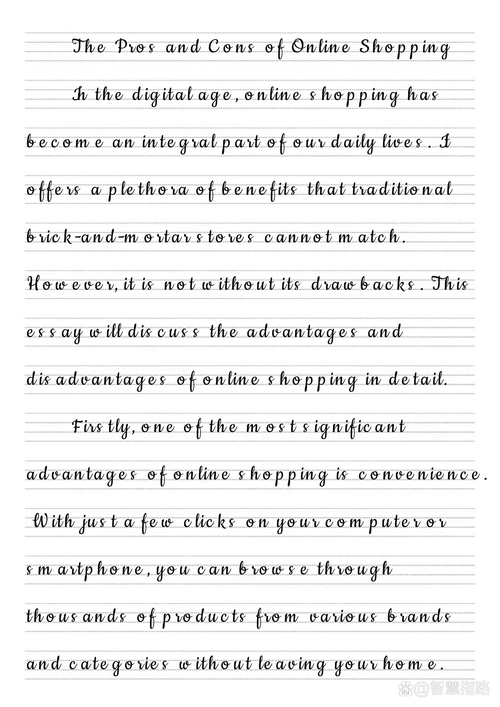 The Pros and Cons of Online Shopping
In the digital age, online shopping has
become an integral part of our daily lives. I
offers a plethora of benefits that traditional
brick-and-mortar stores cannot match.
However, it is not without its drawbacks. This
essay will discuss the advantages and
disadvantages of online shopping in detail.
Firstly, one of the most significant
advantages of online shopping is convenience.
With just a few clicks on your computer or
smartphone, you can browse through
thousands of products from various brands
and categories without leaving your home.
@智慧指路